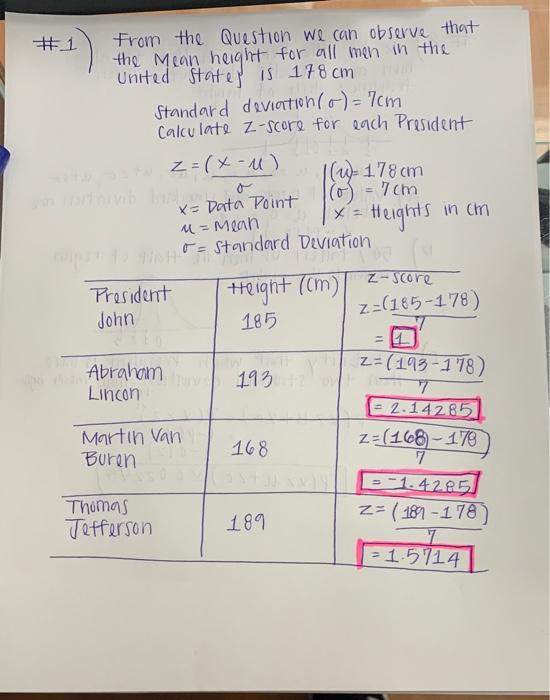 #1) From the Question we can observe that
the Mean height for all men in the
United States is 178 cm
Standard deviation (σ) = 7cm
Calculate Z-score for each President
z = (x - u)
σ
(u) = 178 cm
(σ) = 7 cm
x = Heights in cm
x = Data Point
u = Mean
σ = Standard Deviation
President Height (cm) z-score
John 185 z=(185-178)
7
= 1
Abraham 193 z=(193-178)
Lincon 7
= 2.14285
Martin Van 168 z=(168)-178
Buren 7
= -1.4285
Thomas 189 z= (189-178)
Jefferson 7
= 1.5714